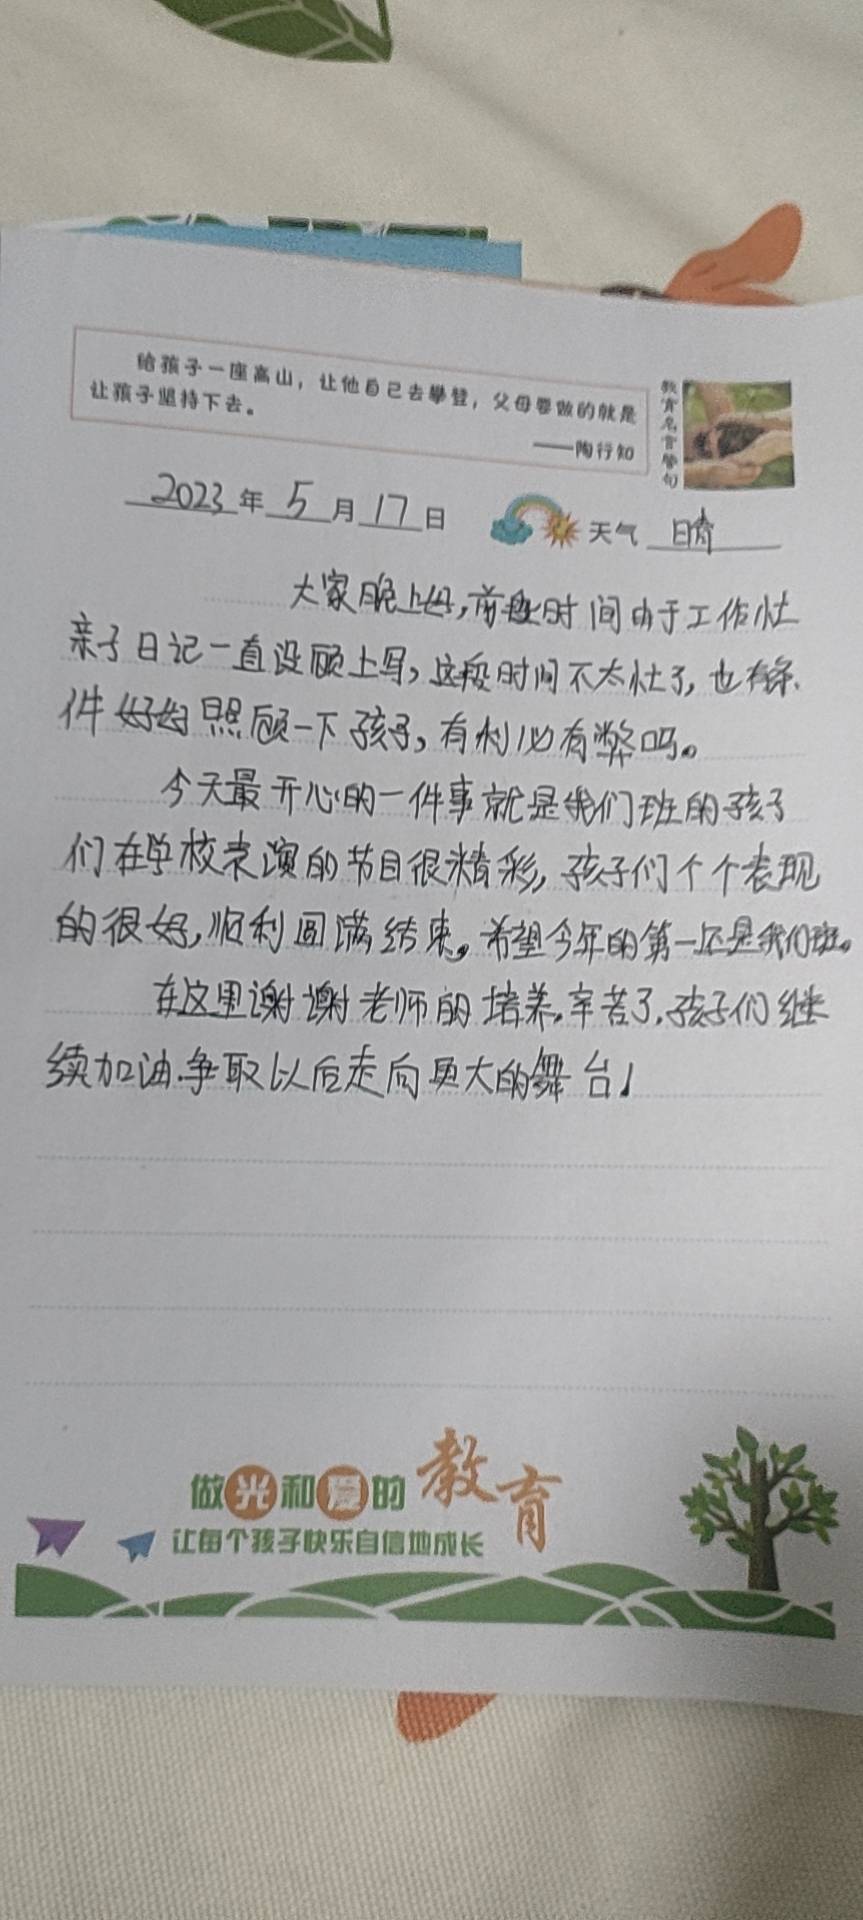 给孩子一座高山，让他自己去攀登，父母要做的就是
让孩子坚持下去。
——陶行知
教育名言警句
2023年5月17日 天气 晴
大家晚上好，前段时间由于工作忙
亲子日记一直没顾上写，这段时间不太忙了，也有条
件好好照顾一下孩子，有利必有弊吗。
今天最开心的一件事就是我们班的孩子
们在学校表演的节目很精彩，孩子们个个表现
的很好，顺利圆满结束。希望今年的第一还是我们班。
在这里谢谢老师的培养，辛苦了，孩子们继
续加油.争取以后走向更大的舞台！
做光和爱的教育
让每个孩子快乐自信地成长